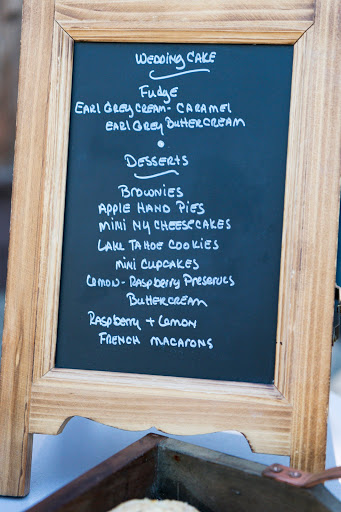 WEDDING CAKE
Fudge
EARL GREY CREAM - CARAMEL
EARL GREY BUTTERCREAM
DESSERTS
BROWNIES
APPLE HAND PIES
MINI NY CHEESECAKES
LAKE TAHOE COOKIES
MINI CUPCAKES
Lemon - Raspberry Preserves
BUTTERCREAM
Raspberry + Lemon
FRENCH MACARONS